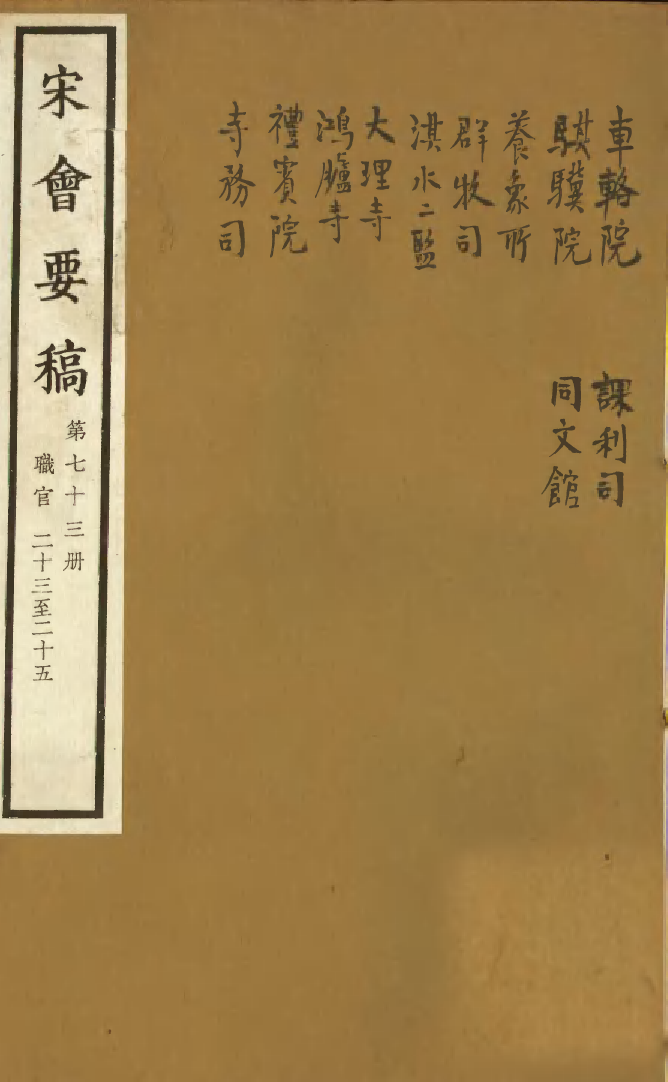 車輅院
騏驥院
養象所
群牧司
淇水二監
大理寺
鴻臚寺
禮賓院
寺務司
課利司
同文館
宋會要稿
第七十三册
職官 二十三至二十五